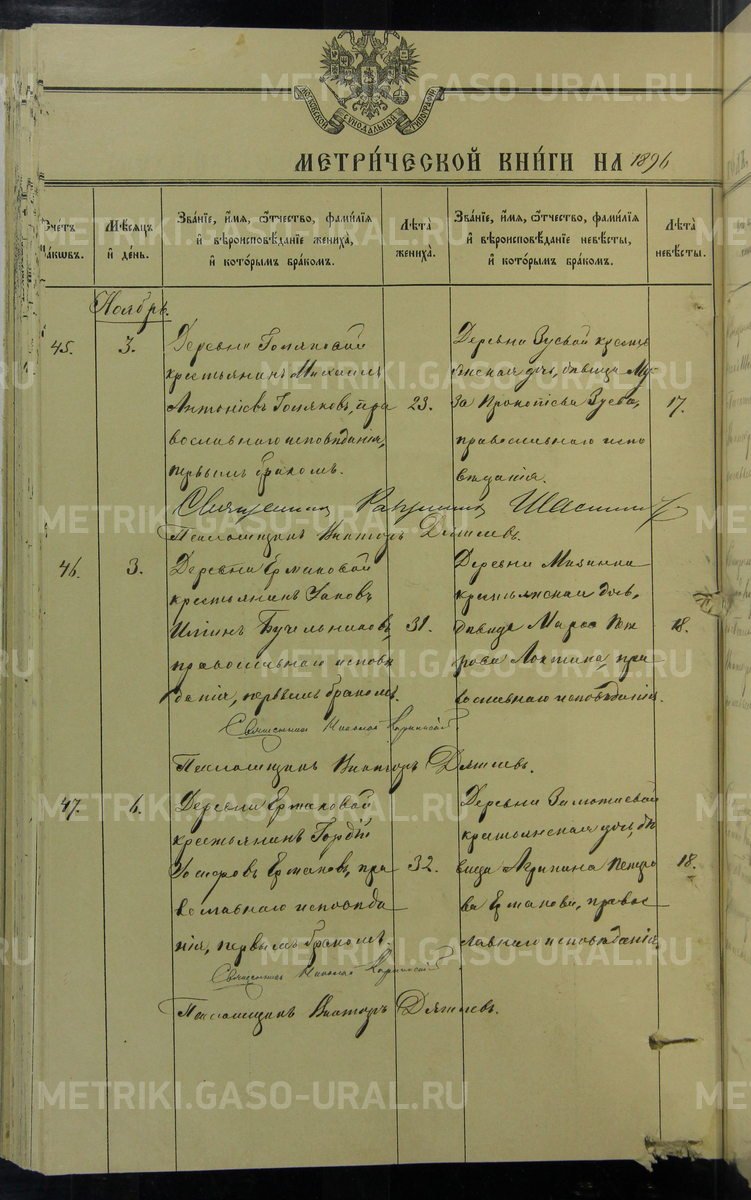 МОСКОВСКОЙ СѴНОДАЛЬНОЙ ТИПОГРАФІИ
МЕТРИ́ЧЕСКОЙ КНИ́ГИ НА 1896
Счетъ браковъ.
Мѣсяцъ и день.
Званіе, имя, отчество, фамилія и вѣроисповѣданіе жениха, и которымъ бракомъ.
Лѣта жениха.
Званіе, имя, отчество, фамилія и вѣроисповѣданіе невѣсты, и которымъ бракомъ.
Лѣта невѣсты.
Ноябрь.
45.
3.
Деревни
крестьянинъ Михаилъ
Антоніевъ, пра
вославнаго исповѣданія,
первымъ бракомъ.
23.
Деревни Зуевой кресть
янская дочь, дѣвица Му
за Прокопіева Зуева,
православнаго испо
вѣданія.
17.
Священник
Псаломщикъ Викторъ
46.
3.
Деревни Ермаковой
крестьянинъ Іаковъ
православнаго исповѣ
данія, первымъ бракомъ.
31.
Деревни
крестьянская дочь,
дѣвица Пет
рова Локтина, пра
вославнаго исповѣданія.
18.
Священник Николай
Псаломщикъ Викторъ
47.
6.
Деревни Ермаковой
крестьянинъ Гордій
Ермаковъ, пра
вославнаго исповѣда
нія, первымъ бракомъ.
32.
Деревни
крестьянская дочь, дѣ
вица Агрипина Петро
ва Ермакова, правос
лавнаго исповѣданія.
18.
Священник Николай
Псаломщикъ Викторъ
METRIKI.GASO-URAL.RU